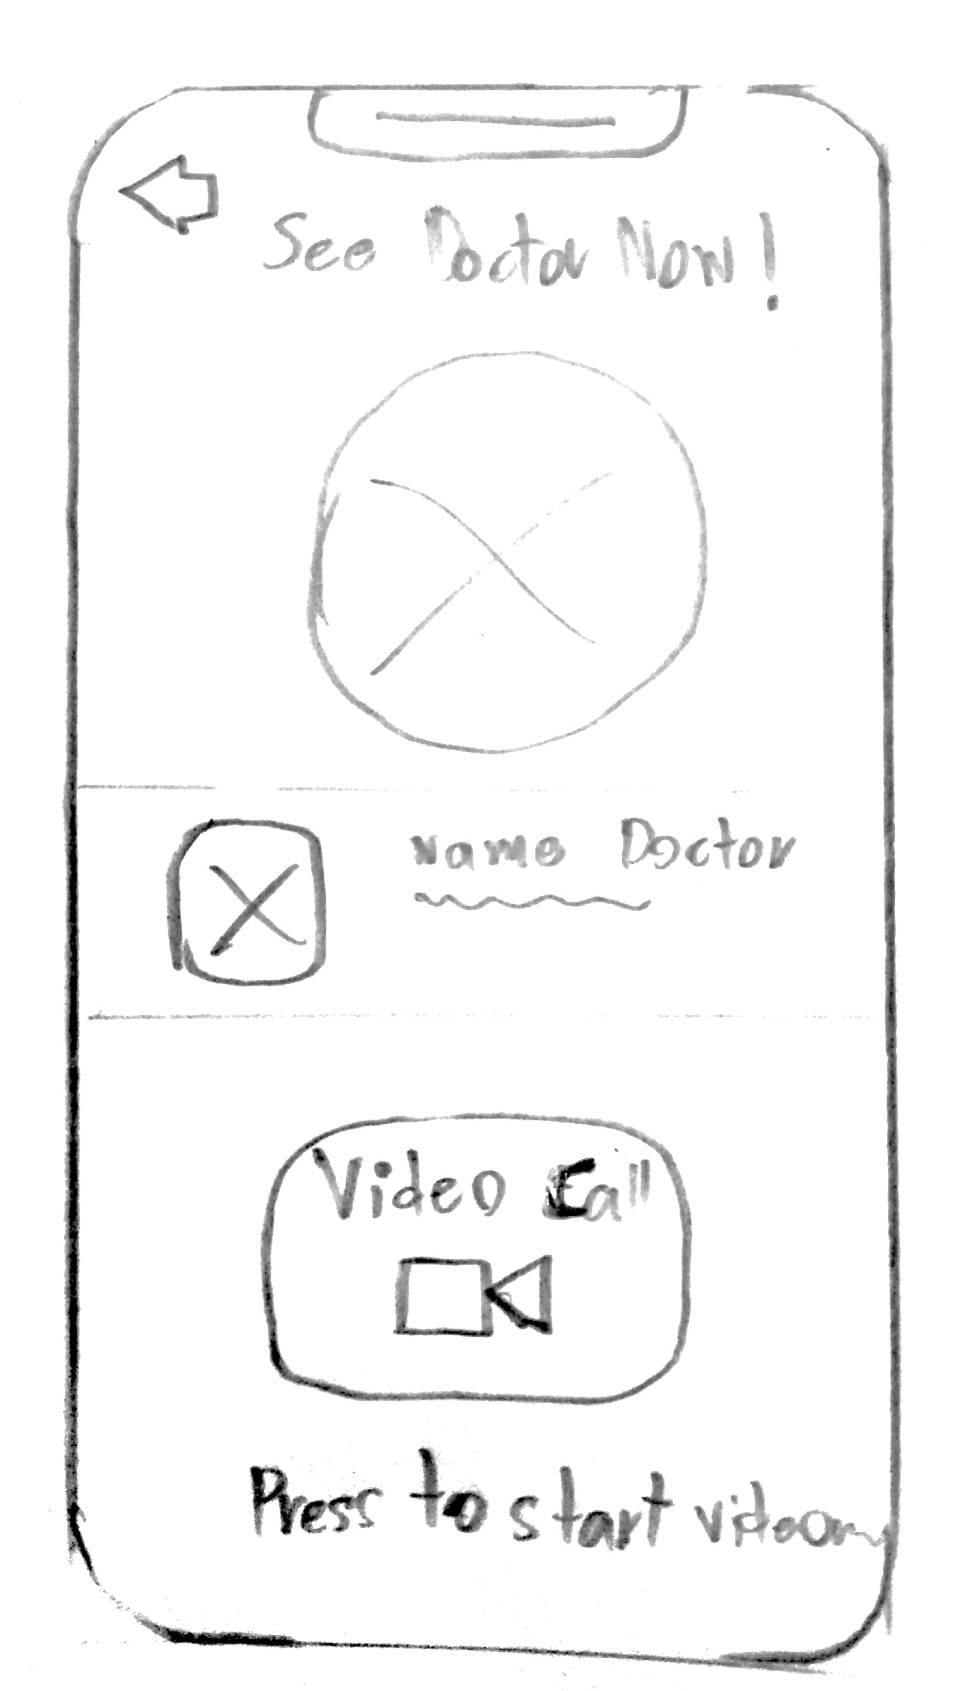 See Doctor Now!
Name Doctor
Video Call
Press to start video